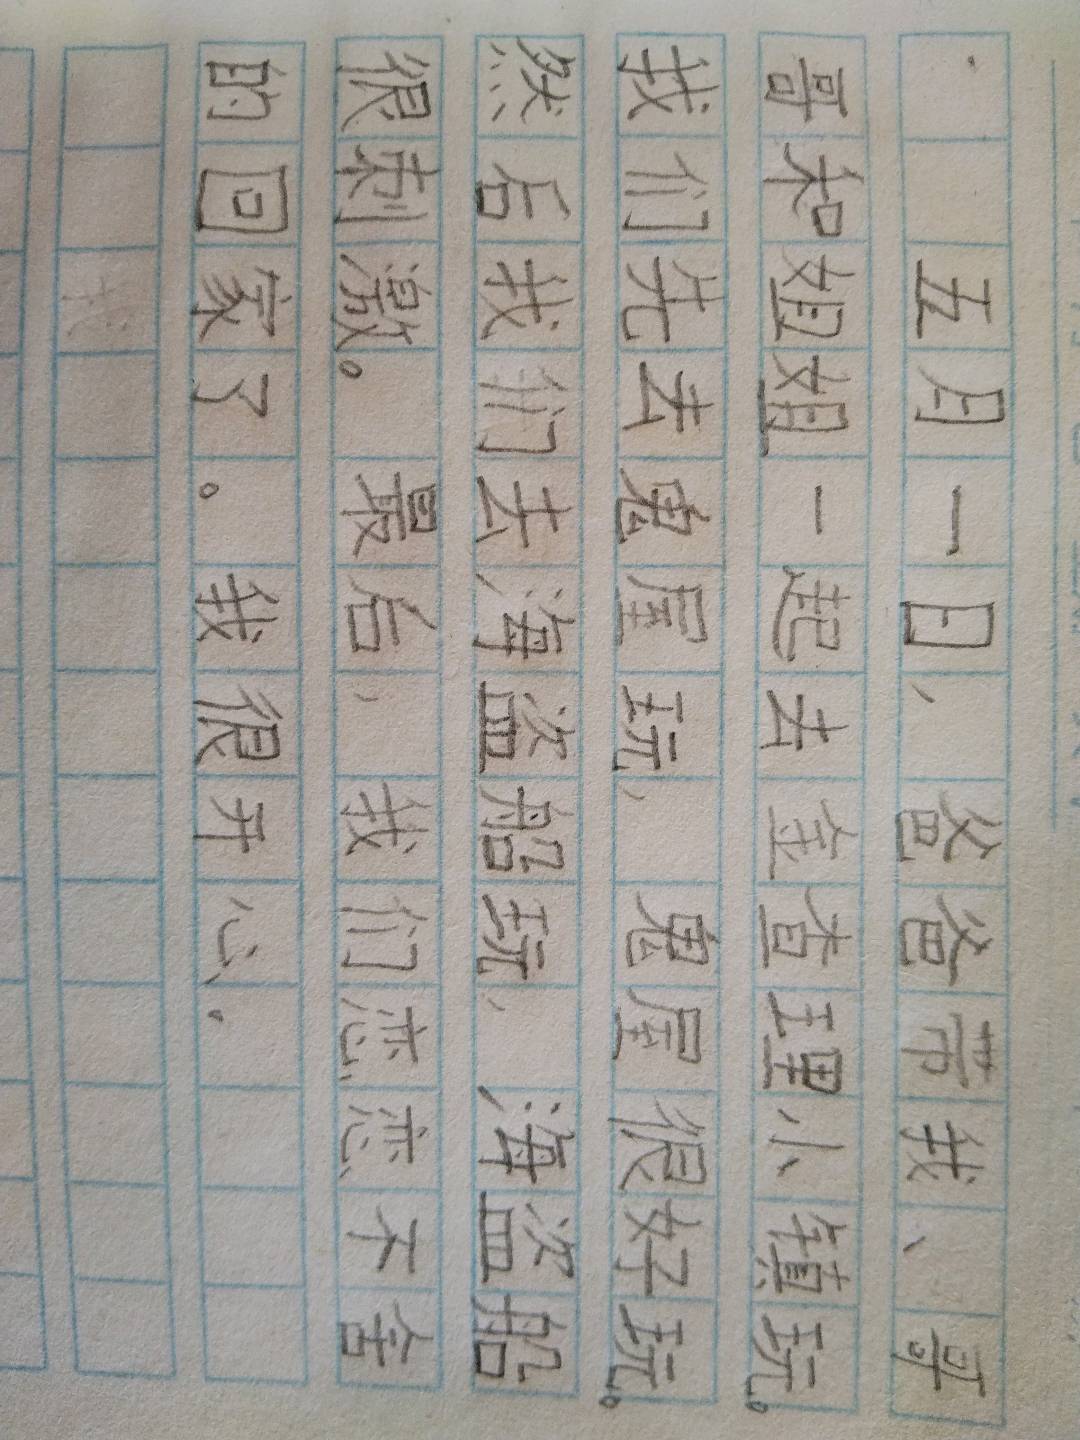 五月一日，爸爸带我、哥
哥和姐姐一起去金查理小镇玩。
我们先去鬼屋玩，鬼屋很好玩。
然后我们去海盗船玩，海盗船
很刺激。最后，我们恋恋不舍
的回家了。我很开心。